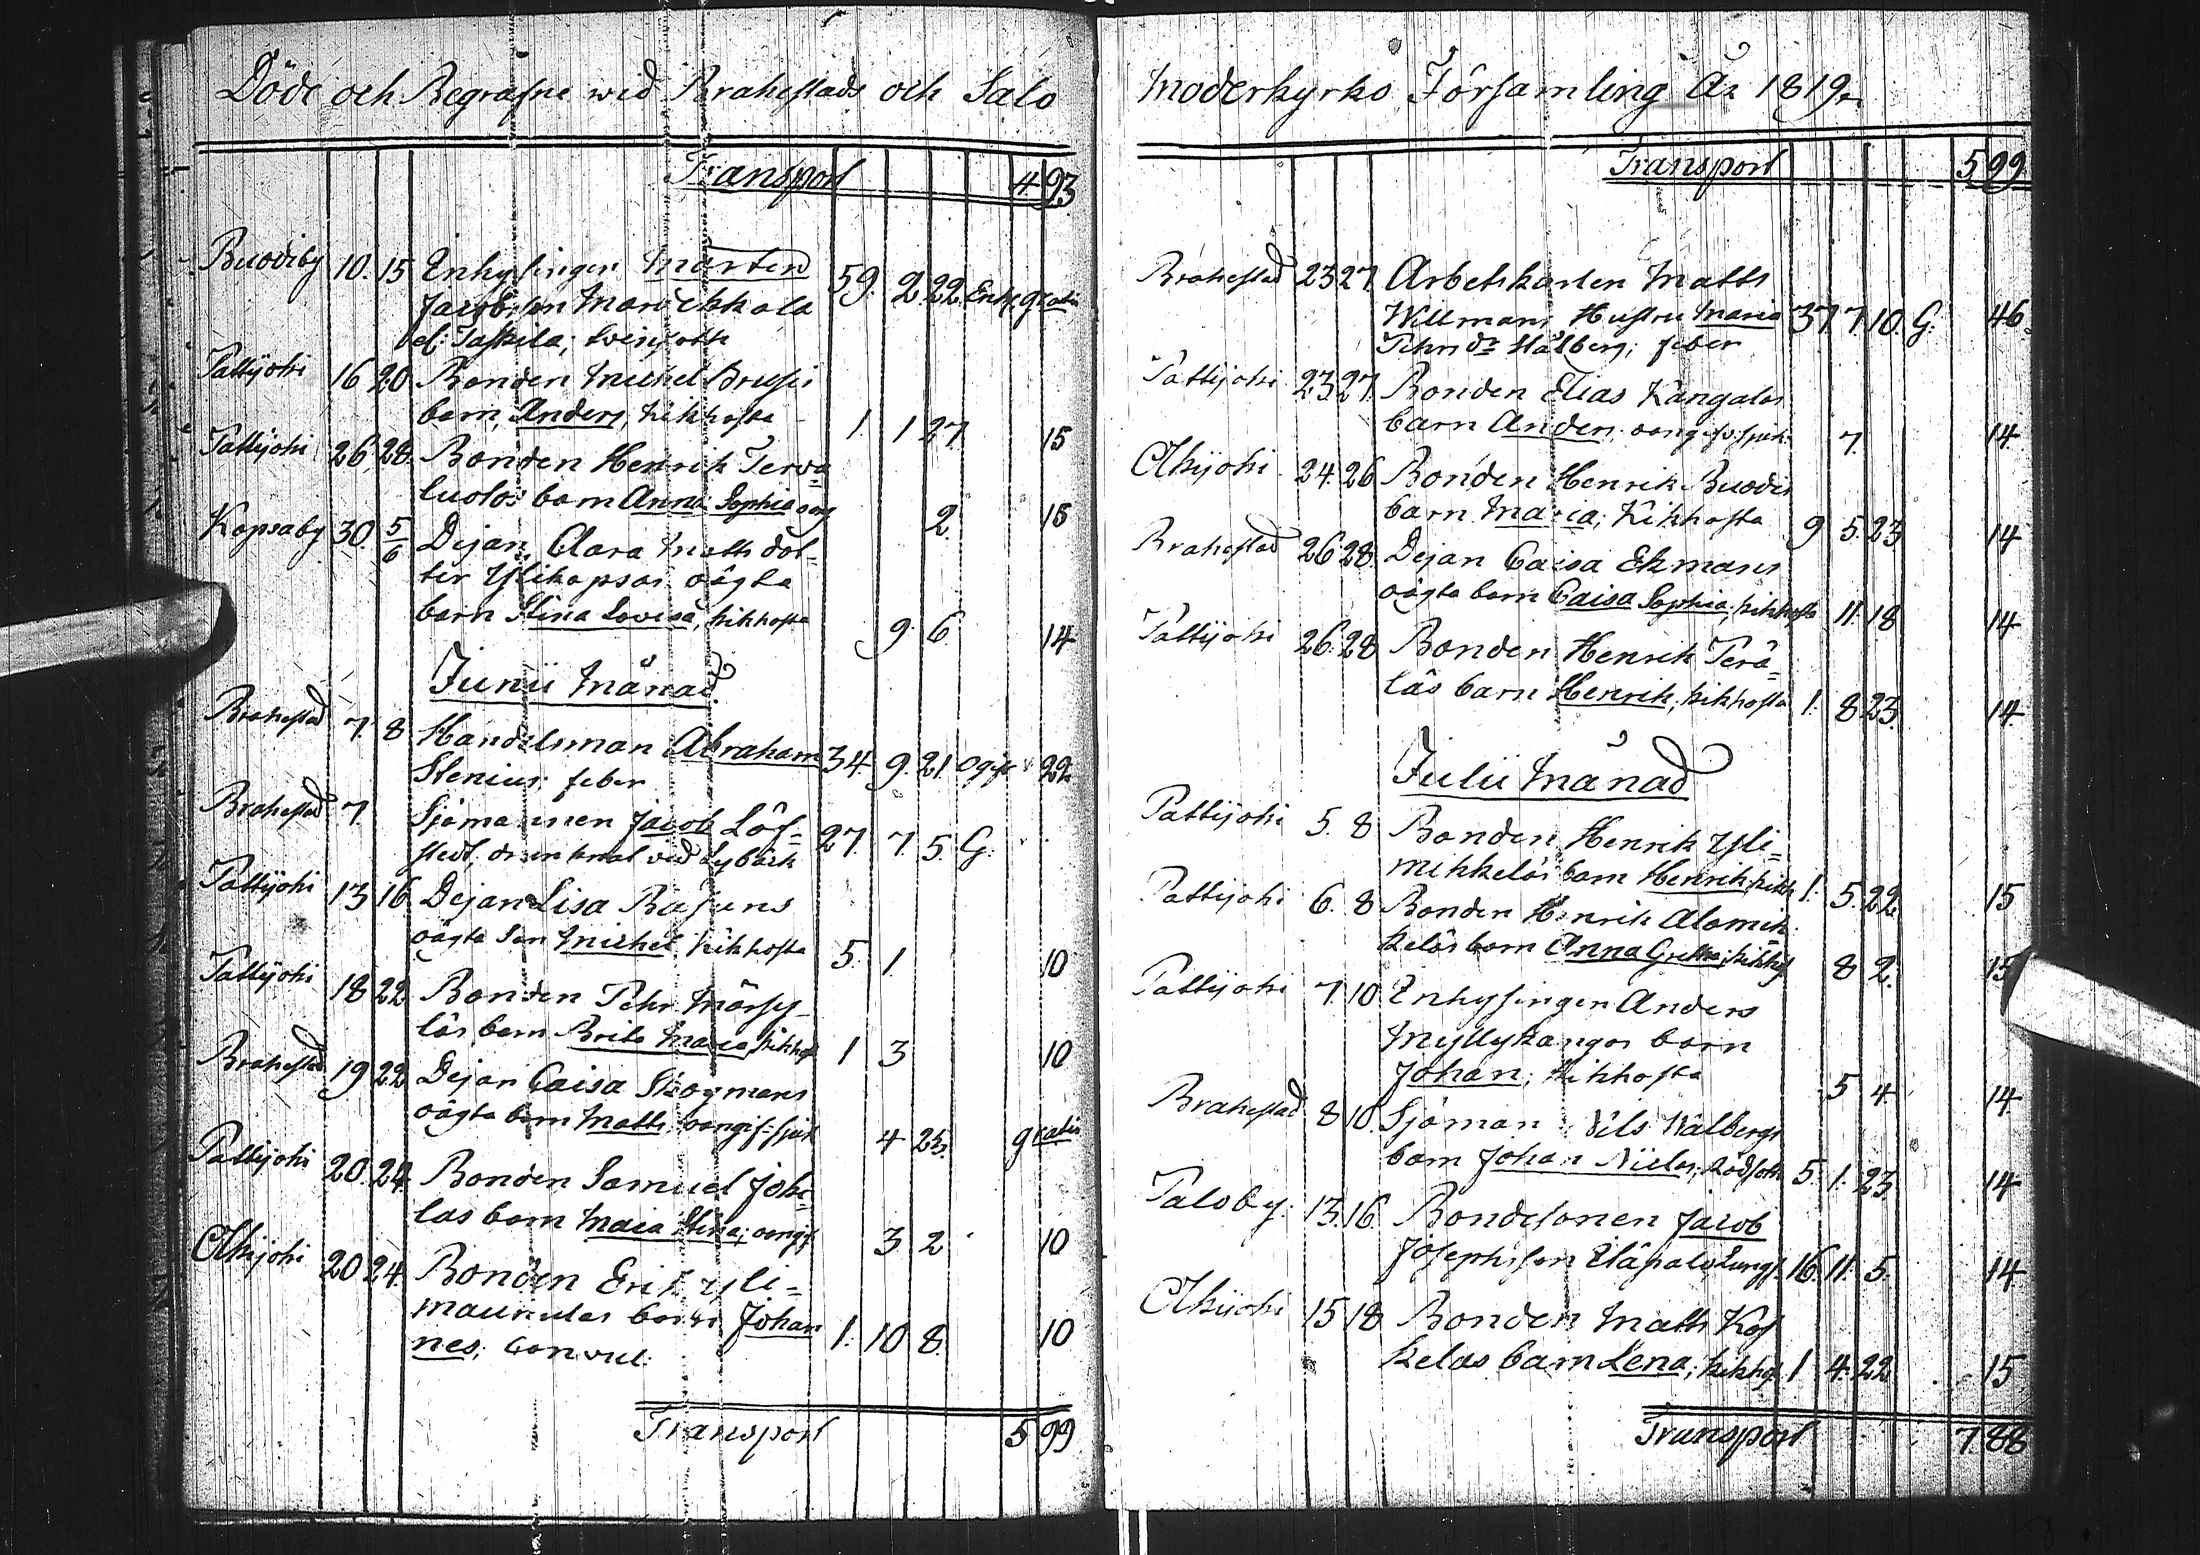 Döde och Begrafne wid Brahestads och Salo
Transport 4 93
Buodiby 10. 15 Inhysingen Mårten
Jacobsson Mandekkala 59. 2. 22. Enkl. gratis
el. Taskila,
Pattijoki 16 20 Bonden Michel Brusis
barn, Anders, kikhosta 1. 1 27. 15
Pattijoki 26 28. Bonden Henrik Terva=
luotos barn Anna Sophia 2. 15
Kopsaby 30. 5/6 Dejan Clara Matts dot-
ter Ylikopsas oägta
barn Stina Lovisa, kikhosta 9. 6 14
Junii Månad.
Brahestad 7. 8 Handelsman Abraham 34. 9. 21. Ogift 22
Stenius; feber
Brahestad 7. Sjömannen Jacob Löf- 27. 7. 5. G.
stedt, drunknat vid Lybäck
Pattijoki 13 16 Dejan Lisa
oägta son Michel, kikhosta 5. 1 10
Pattijoki 18 22 Bonden Pehr Mörsy-
läs barn Brita Maria, kikhost 1 3 10
Brahestad 19 22 Dejan Caisa Skogmans
oägta barn Matts, oangif. sjuk 4 23. gratis
Pattijoki 20. 24. Bonden Samuel Joki=
las barn Maia Stina; oangif 3 2 10
Olkijoki 20 24. Bonden Erik Yli=
maunulas barn Johan 1. 10 8. 10
nes; convul.
Transport 5 99
Moderkyrko Församling År 1819.
Transport 5 99
Brahestad 23 27. Arbetskarlen Matts
Willmans Hustru Maria 37. 7 10. G. 46.
Pehrsdr Hålberg; feber
Pattijoki 23 27. Bonden Elias Kangalas
barn Anders, oangif. sjuk. 7. 14
Olkijoki 24. 26 Bonden Henrik Buodis
barn Maria; Kikhosta 9 5. 23 14
Brahestad 26 28. Dejan Caisa Ekmans
oägta barn Caisa Sophia, kikhosta 11. 18 14
Pattijoki 26. 28. Bonden Henrik Perä=
läs barn Henrik, kikhosta 1. 8 23. 14.
Julii Månad
Pattijoki 5. 8 Bonden Henrik Yli=
mikkeläs barn Henrik, kikh 1. 5. 22. 15
Pattijoki 6. 8 Bonden Henrik Alamik
keläs barn Anna Gretha, kikh. 8 2. 15
Pattijoki 7. 10 Inhysingen Anders
Myllykangas barn
Johan; Kikhosta 5 4. 14
Brahestad 8 10. Sjöman Nils Wålbergs
barn Johan Niclas; rödsot 5. 1. 23 14
Paloby. 13. 16. Bondesonen Jacob
Josephsson Eläpalo Lungs. 16. 11. 5. 14
Olkijoki 15 18. Bonden Matts Kos
kelas barn Lena; kikhos. 1 4. 22 15
Transport 7 88